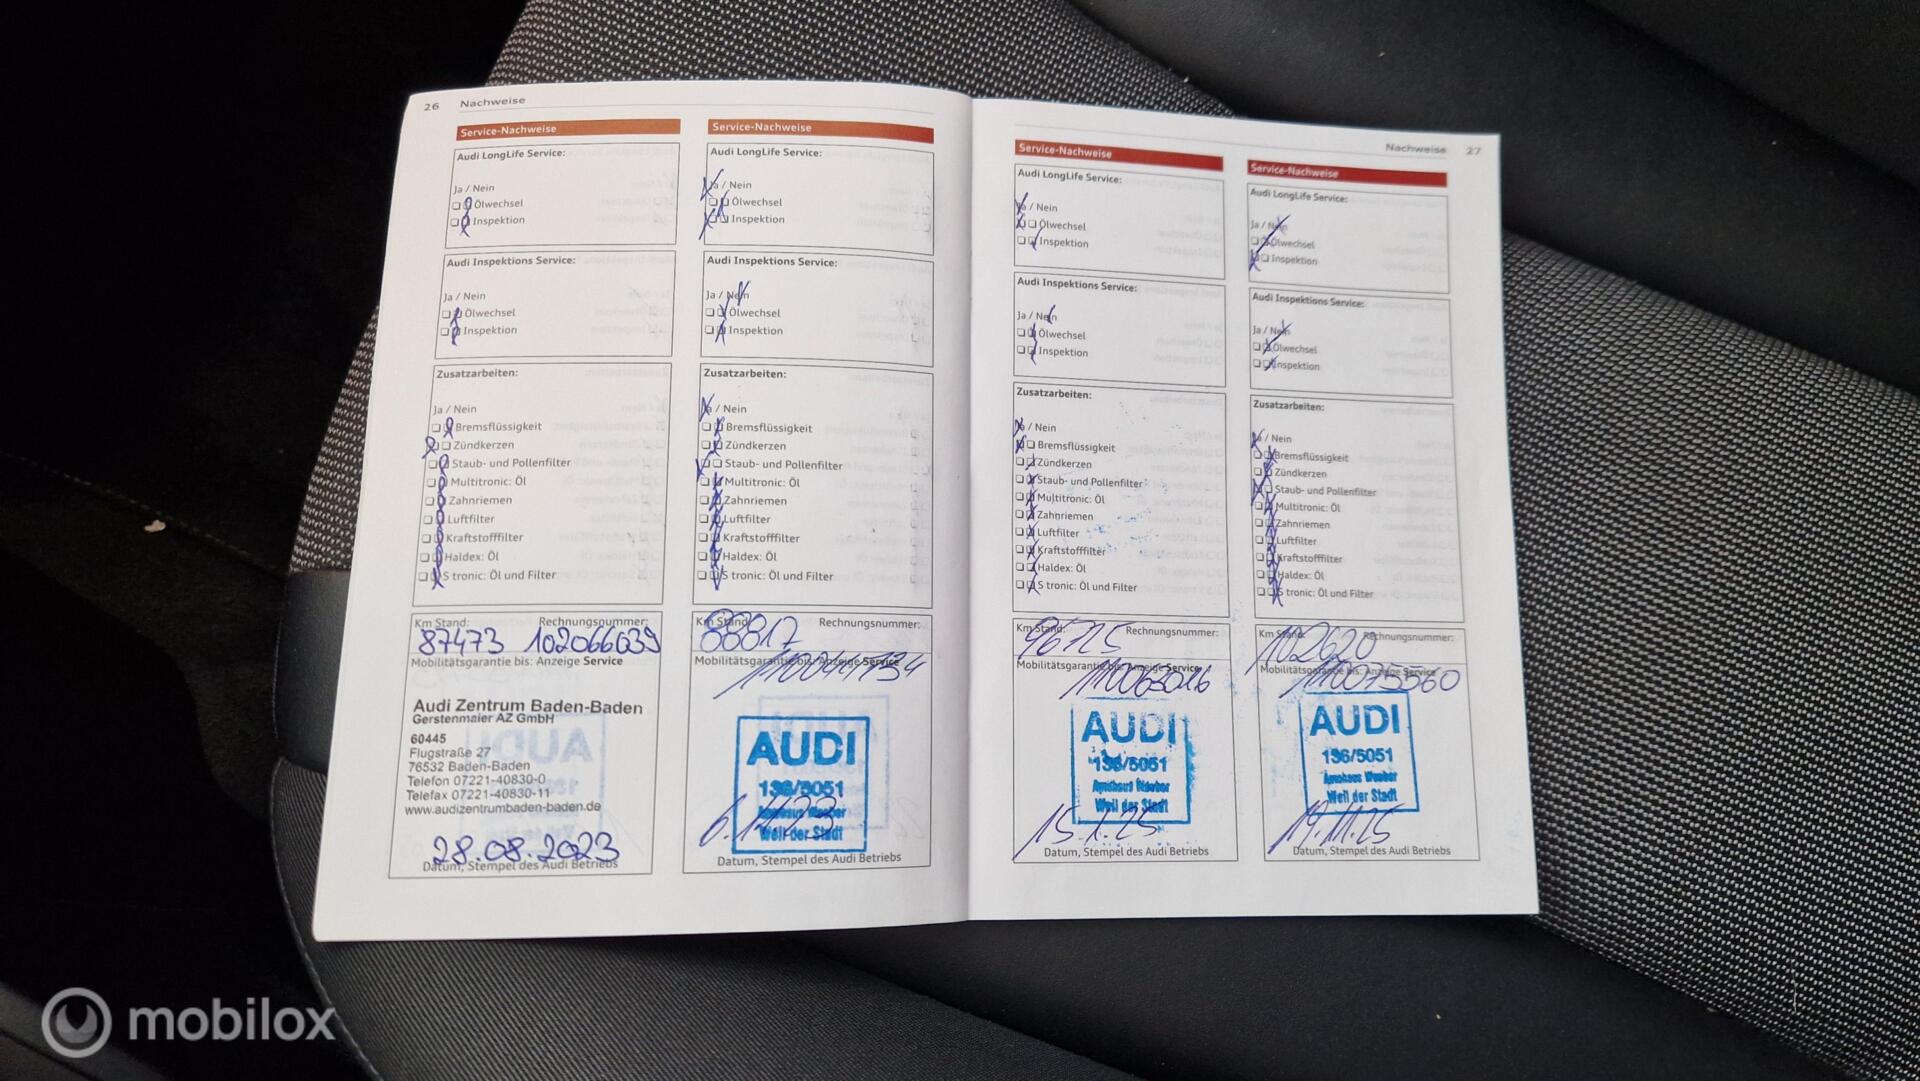 26 Nachweise
Service-Nachweise
Audi LongLife Service:
Ja / Nein
Ölwechsel
Inspektion
Audi Inspektions Service:
Ja / Nein
Ölwechsel
Inspektion
Zusatzarbeiten:
Ja / Nein
Bremsflüssigkeit
Zündkerzen
Staub- und Pollenfilter
Multitronic: Öl
Zahnriemen
Luftfilter
Kraftstofffilter
Haldex: Öl
S tronic: Öl und Filter
Km Stand: Rechnungsnummer:
87473 102066039
Mobilitätsgarantie bis: Anzeige Service
Audi Zentrum Baden-Baden
Gerstenmaier AZ GmbH
60445
Flugstraße 27
76532 Baden-Baden
Telefon 07221-40830-0
Telefax 07221-40830-11
www.audizentrumbaden-baden.de
28.08.2023
Datum, Stempel des Audi Betriebs
Service-Nachweise
Audi LongLife Service:
Ja / Nein
Ölwechsel
Inspektion
Audi Inspektions Service:
Ja / Nein
Ölwechsel
Inspektion
Zusatzarbeiten:
Ja / Nein
Bremsflüssigkeit
Zündkerzen
Staub- und Pollenfilter
Multitronic: Öl
Zahnriemen
Luftfilter
Kraftstofffilter
Haldex: Öl
S tronic: Öl und Filter
Km Stand: Rechnungsnummer:
88817
Mobilitätsgarantie bis: Anzeige Service
AUDI
136/5051
Weil der Stadt
Datum, Stempel des Audi Betriebs
Nachweise 27
Service-Nachweise
Audi LongLife Service:
Ja / Nein
Ölwechsel
Inspektion
Audi Inspektions Service:
Ja / Nein
Ölwechsel
Inspektion
Zusatzarbeiten:
Ja / Nein
Bremsflüssigkeit
Zündkerzen
Staub- und Pollenfilter
Multitronic: Öl
Zahnriemen
Luftfilter
Kraftstofffilter
Haldex: Öl
S tronic: Öl und Filter
Km Stand: Rechnungsnummer:
Mobilitätsgarantie bis: Anzeige Service
AUDI
136/5051
Weil der Stadt
15.1.25
Datum, Stempel des Audi Betriebs
Service-Nachweise
Audi LongLife Service:
Ja / Nein
Ölwechsel
Inspektion
Audi Inspektions Service:
Ja / Nein
Ölwechsel
Inspektion
Zusatzarbeiten:
Ja / Nein
Bremsflüssigkeit
Zündkerzen
Staub- und Pollenfilter
Multitronic: Öl
Zahnriemen
Luftfilter
Kraftstofffilter
Haldex: Öl
S tronic: Öl und Filter
Km Stand: Rechnungsnummer:
102620
Mobilitätsgarantie bis: Anzeige Service
110075560
AUDI
136/5051
Weil der Stadt
19.11.25
Datum, Stempel des Audi Betriebs
mobilox